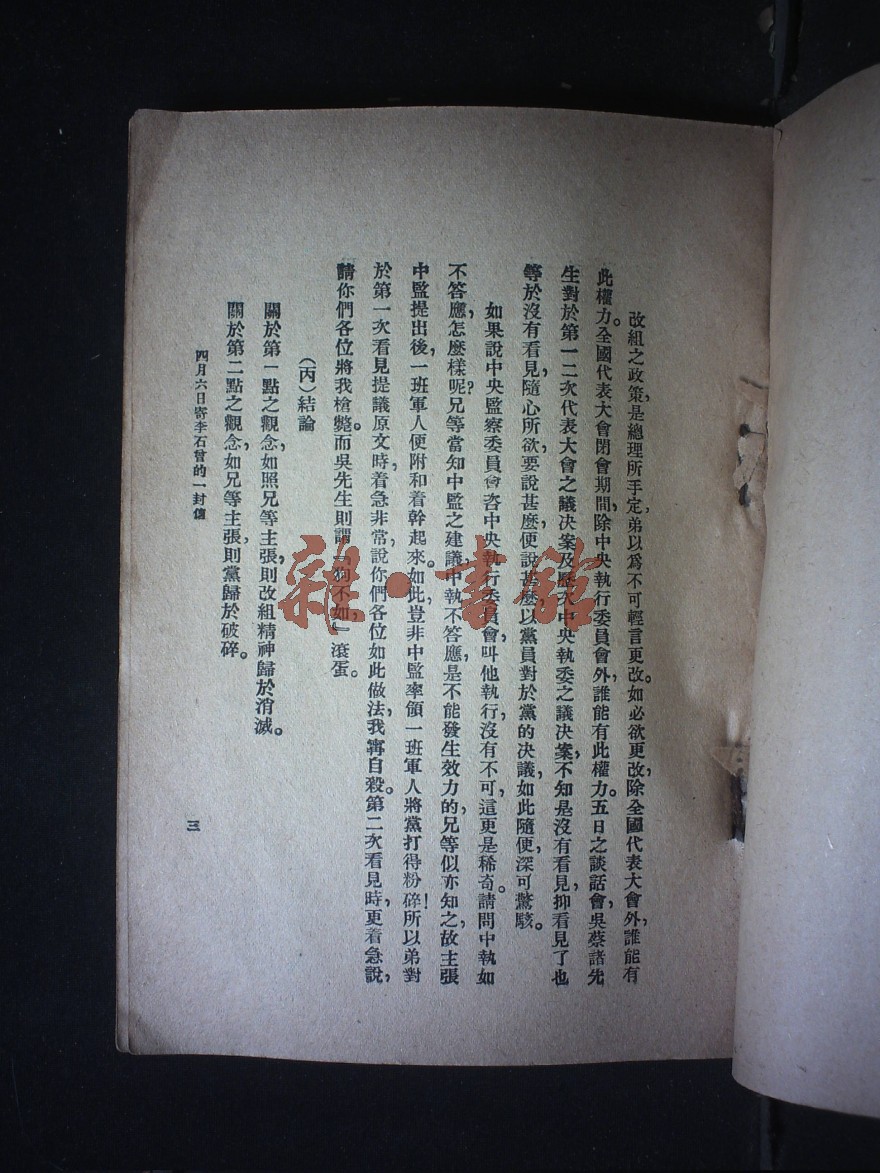 改組之政策，是總理所手定，弟以爲不可輕言更改。如必欲更改，除全國代表大會外，誰能有
此權力。全國代表大會閉會期間，除中央執行委員會外，誰能有此權力。五日之談話會，吳蔡諸先
生對於第一二次代表大會之議決案及歷次中央執委之議決案，不知是沒有看見，抑看見了也
等於沒有看見，隨心所欲，要說甚麼，便說甚麼，以黨員對於黨的決議，如此隨便，深可驚駭。
如果說中央監察委員會咨中央執行委員會，叫他執行，沒有不可，這更是稀奇。請問中執如
不答應，怎麼樣呢？兄等當知中監之建議，中執不答應，是不能發生效力的，兄等似亦知之，故主張
中監提出後，一班軍人便附和着幹起來。如此，豈非中監率領一班軍人將黨打得粉碎！所以弟對
於第一次看見提議原文時，着急非常，說你們各位如此做法，我寗自殺。第二次看見時，更着急說，
請你們各位將我槍斃。而吳先生則謂「狗不如，」滾蛋。
（丙）結論
關於第一點之觀念，如照兄等主張，則改組精神歸於消滅。
關於第二點之觀念，如兄等主張，則黨歸於破碎。
四月六日寄李石曾的一封信
三
雜·書館